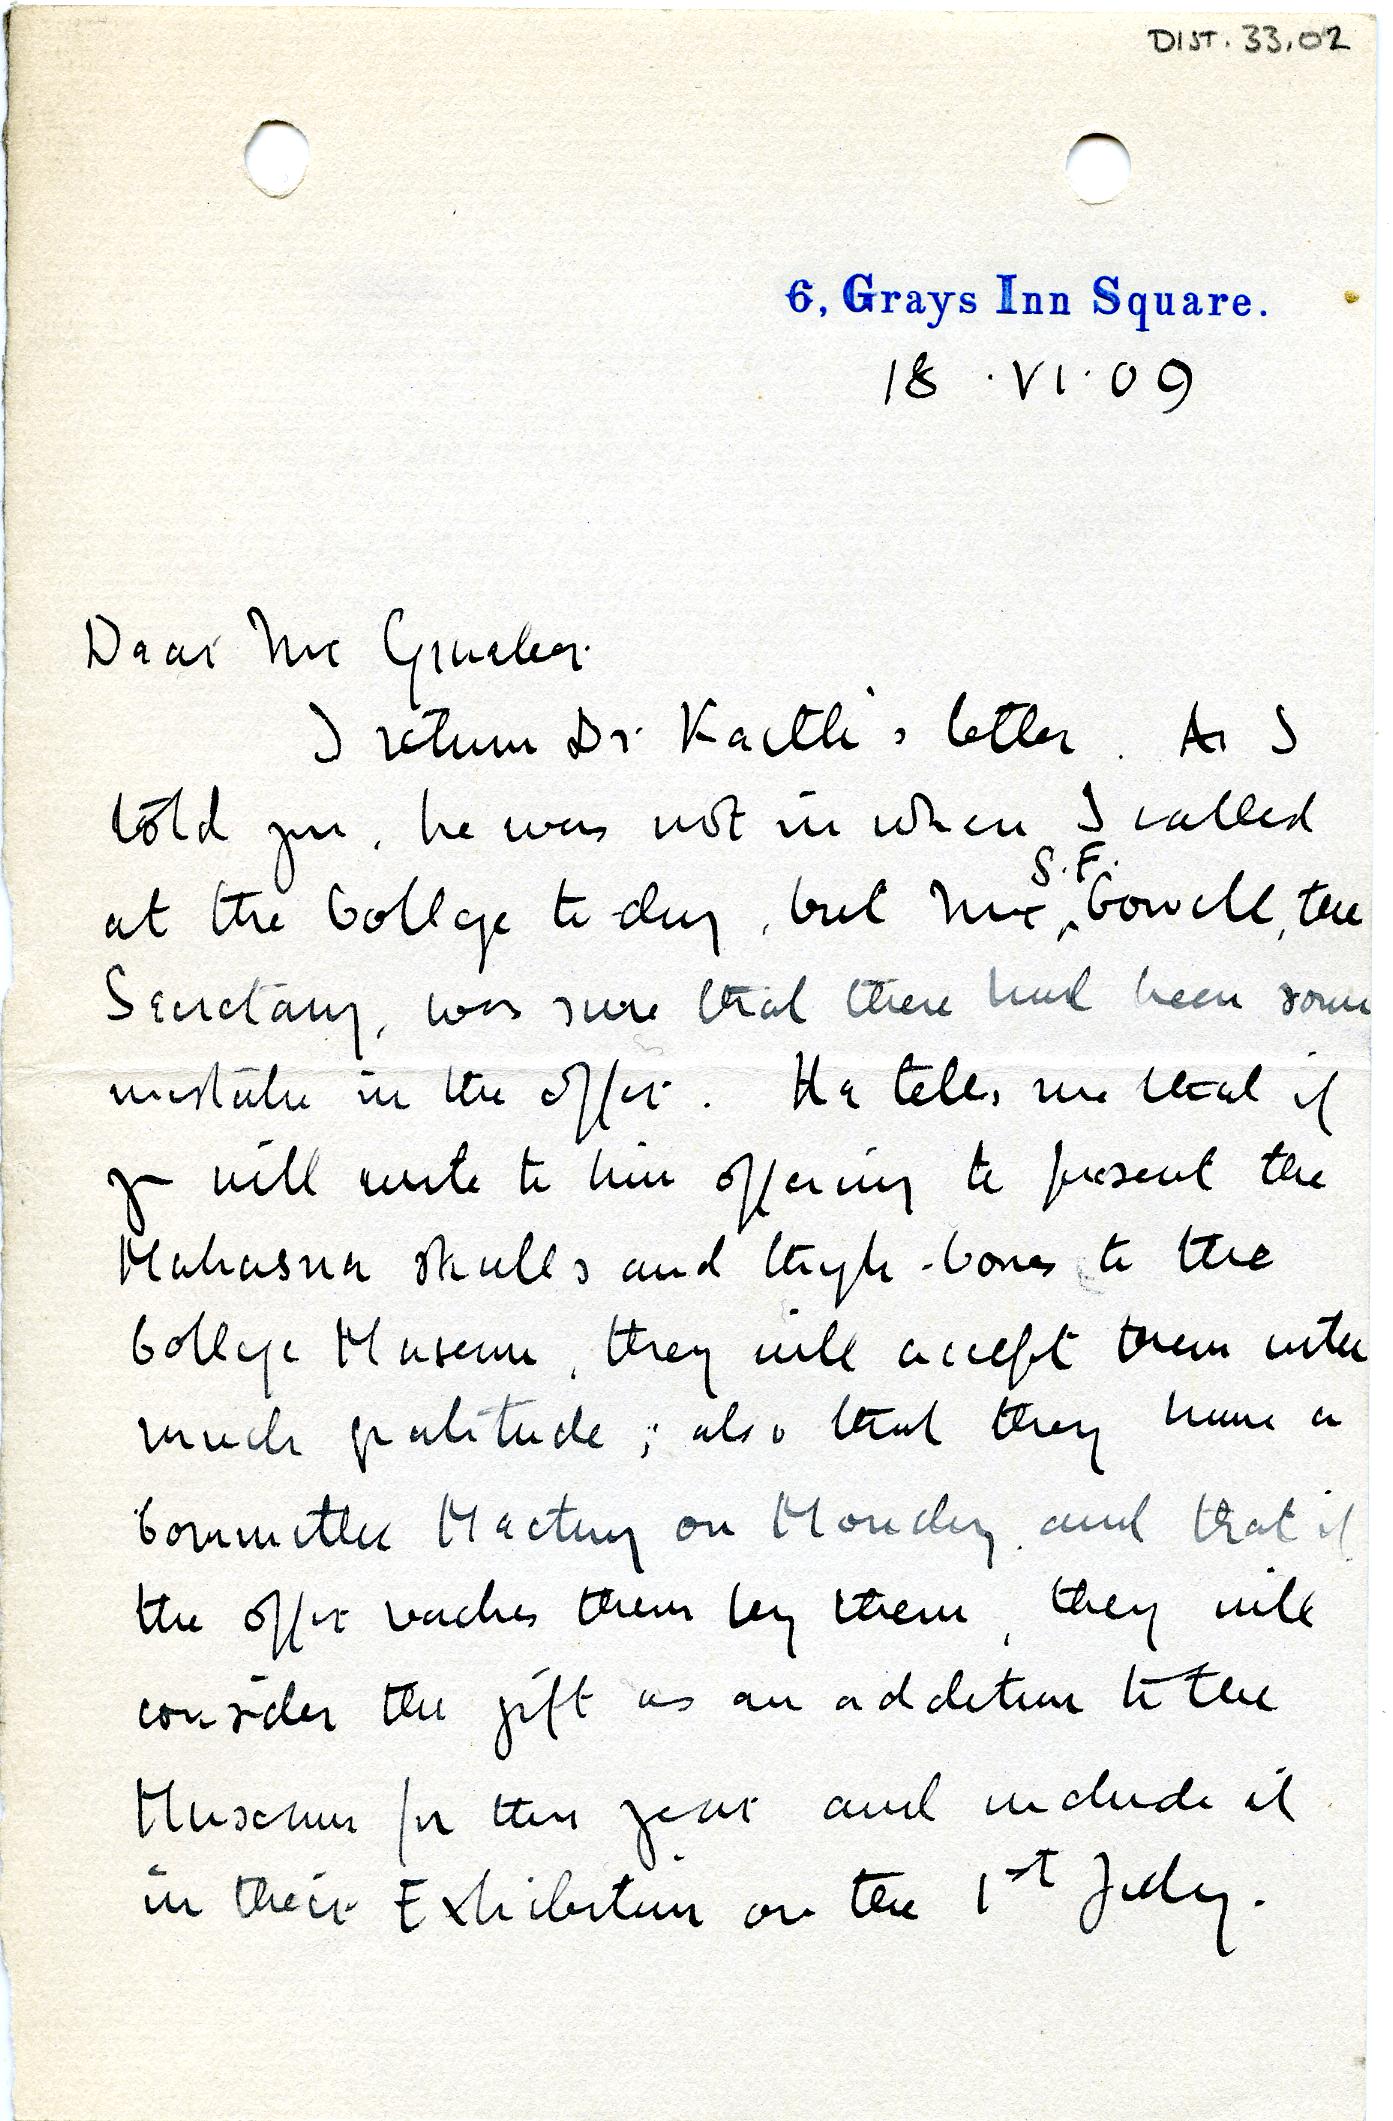 DIST. 33.02
6, Grays Inn Square.
18 . VI . 09
Dear Mr Grueber.
I return Dr. Keith's letter. As I
told you, he was not in when I called
S.F.
at the College to-day, but Mr Cowell, the
Secretary, was sure that there had been some
mistake in the offer. He tells me that if
you will write to him offering to present the
Mahasna skulls and thigh-bones to the
College Museum, they will accept them with
much gratitude; also that they have a
Committee Meeting on Monday and that if
the offer reaches them by them, they will
consider the gift as an addition to the
Museum for this year and include it
in their Exhibition on the 1st July.